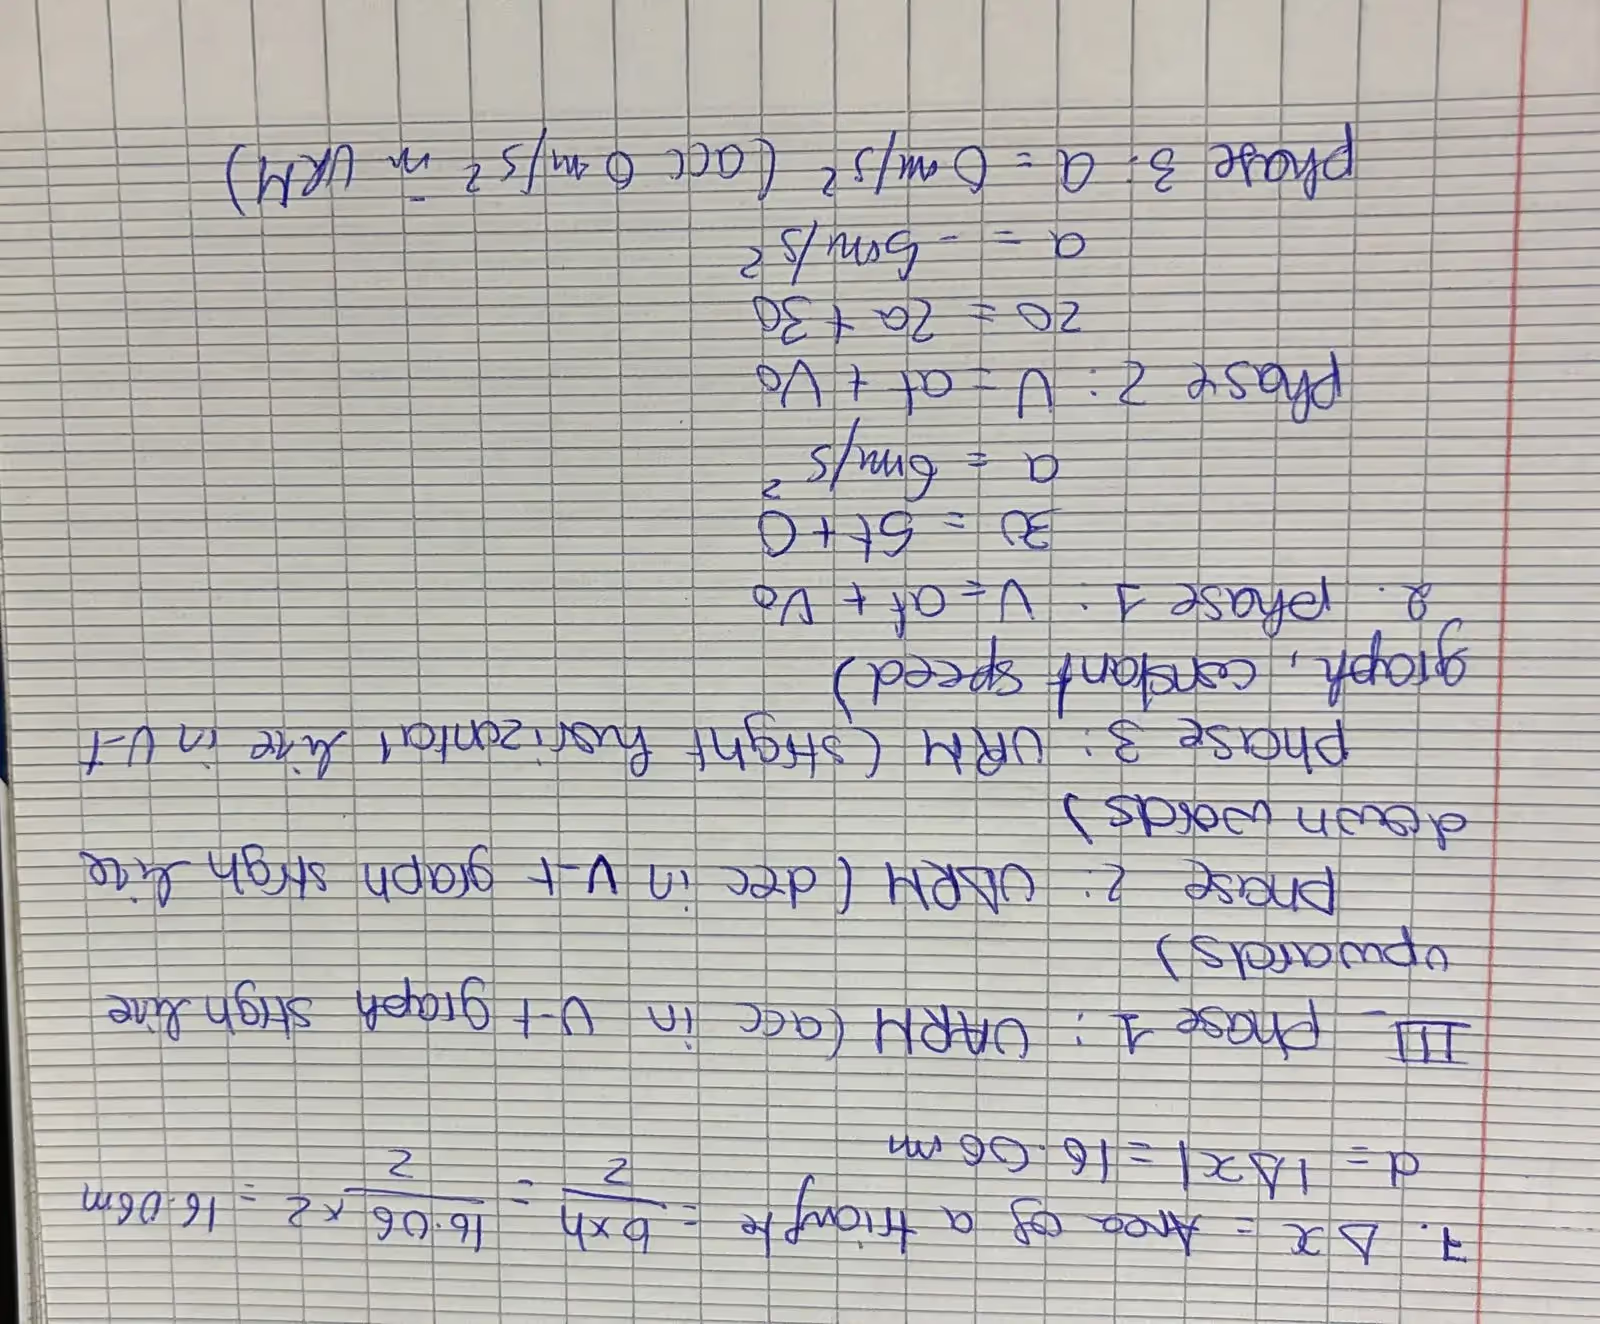 7. Δx = Area of a triangle = b×h/2 = 16.06×2/2 = 16.06m
d = |Δx| = 16.06m
III- phase 1: UARM (acc in v-t graph strgh line
upwards)
phase 2: UDRM (dec in v-t graph strgh line
down wards)
phase 3: URM (strght horizontal line in v-t
graph, constant speed)
2. phase 1: V = at + V₀
30 = 5t + 0
a = 6m/s²
phase 2: V = at + V₀
20 = 2a + 30
a = - 5m/s²
phase 3: a = 0 m/s² (acc 0 m/s² in URM)